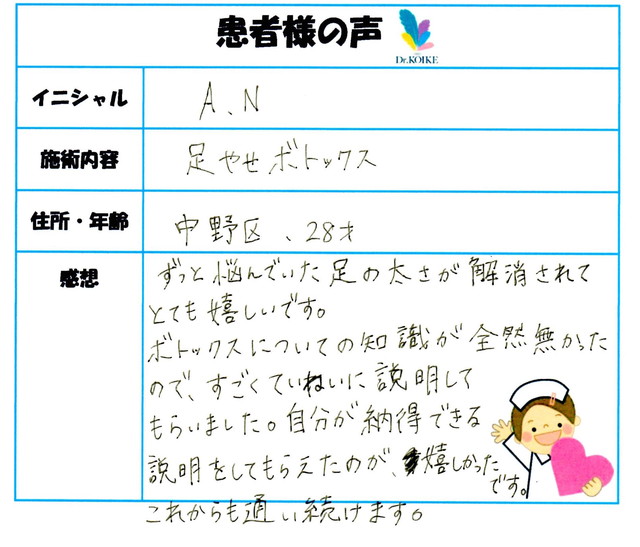 患者様の声
Dr.KOIKE
イニシャル
A、N
施術内容
足やせボトックス
住所・年齢
中野区、28才
感想
ずっと悩んでいた足の太さが解消されて
とても嬉しいです。
ボトックスについての知識が全然無かった
ので、すごくていねいに説明して
もらいました。自分が納得できる
説明をしてもらえたのが、嬉しかった
です。
これからも通い続けます。